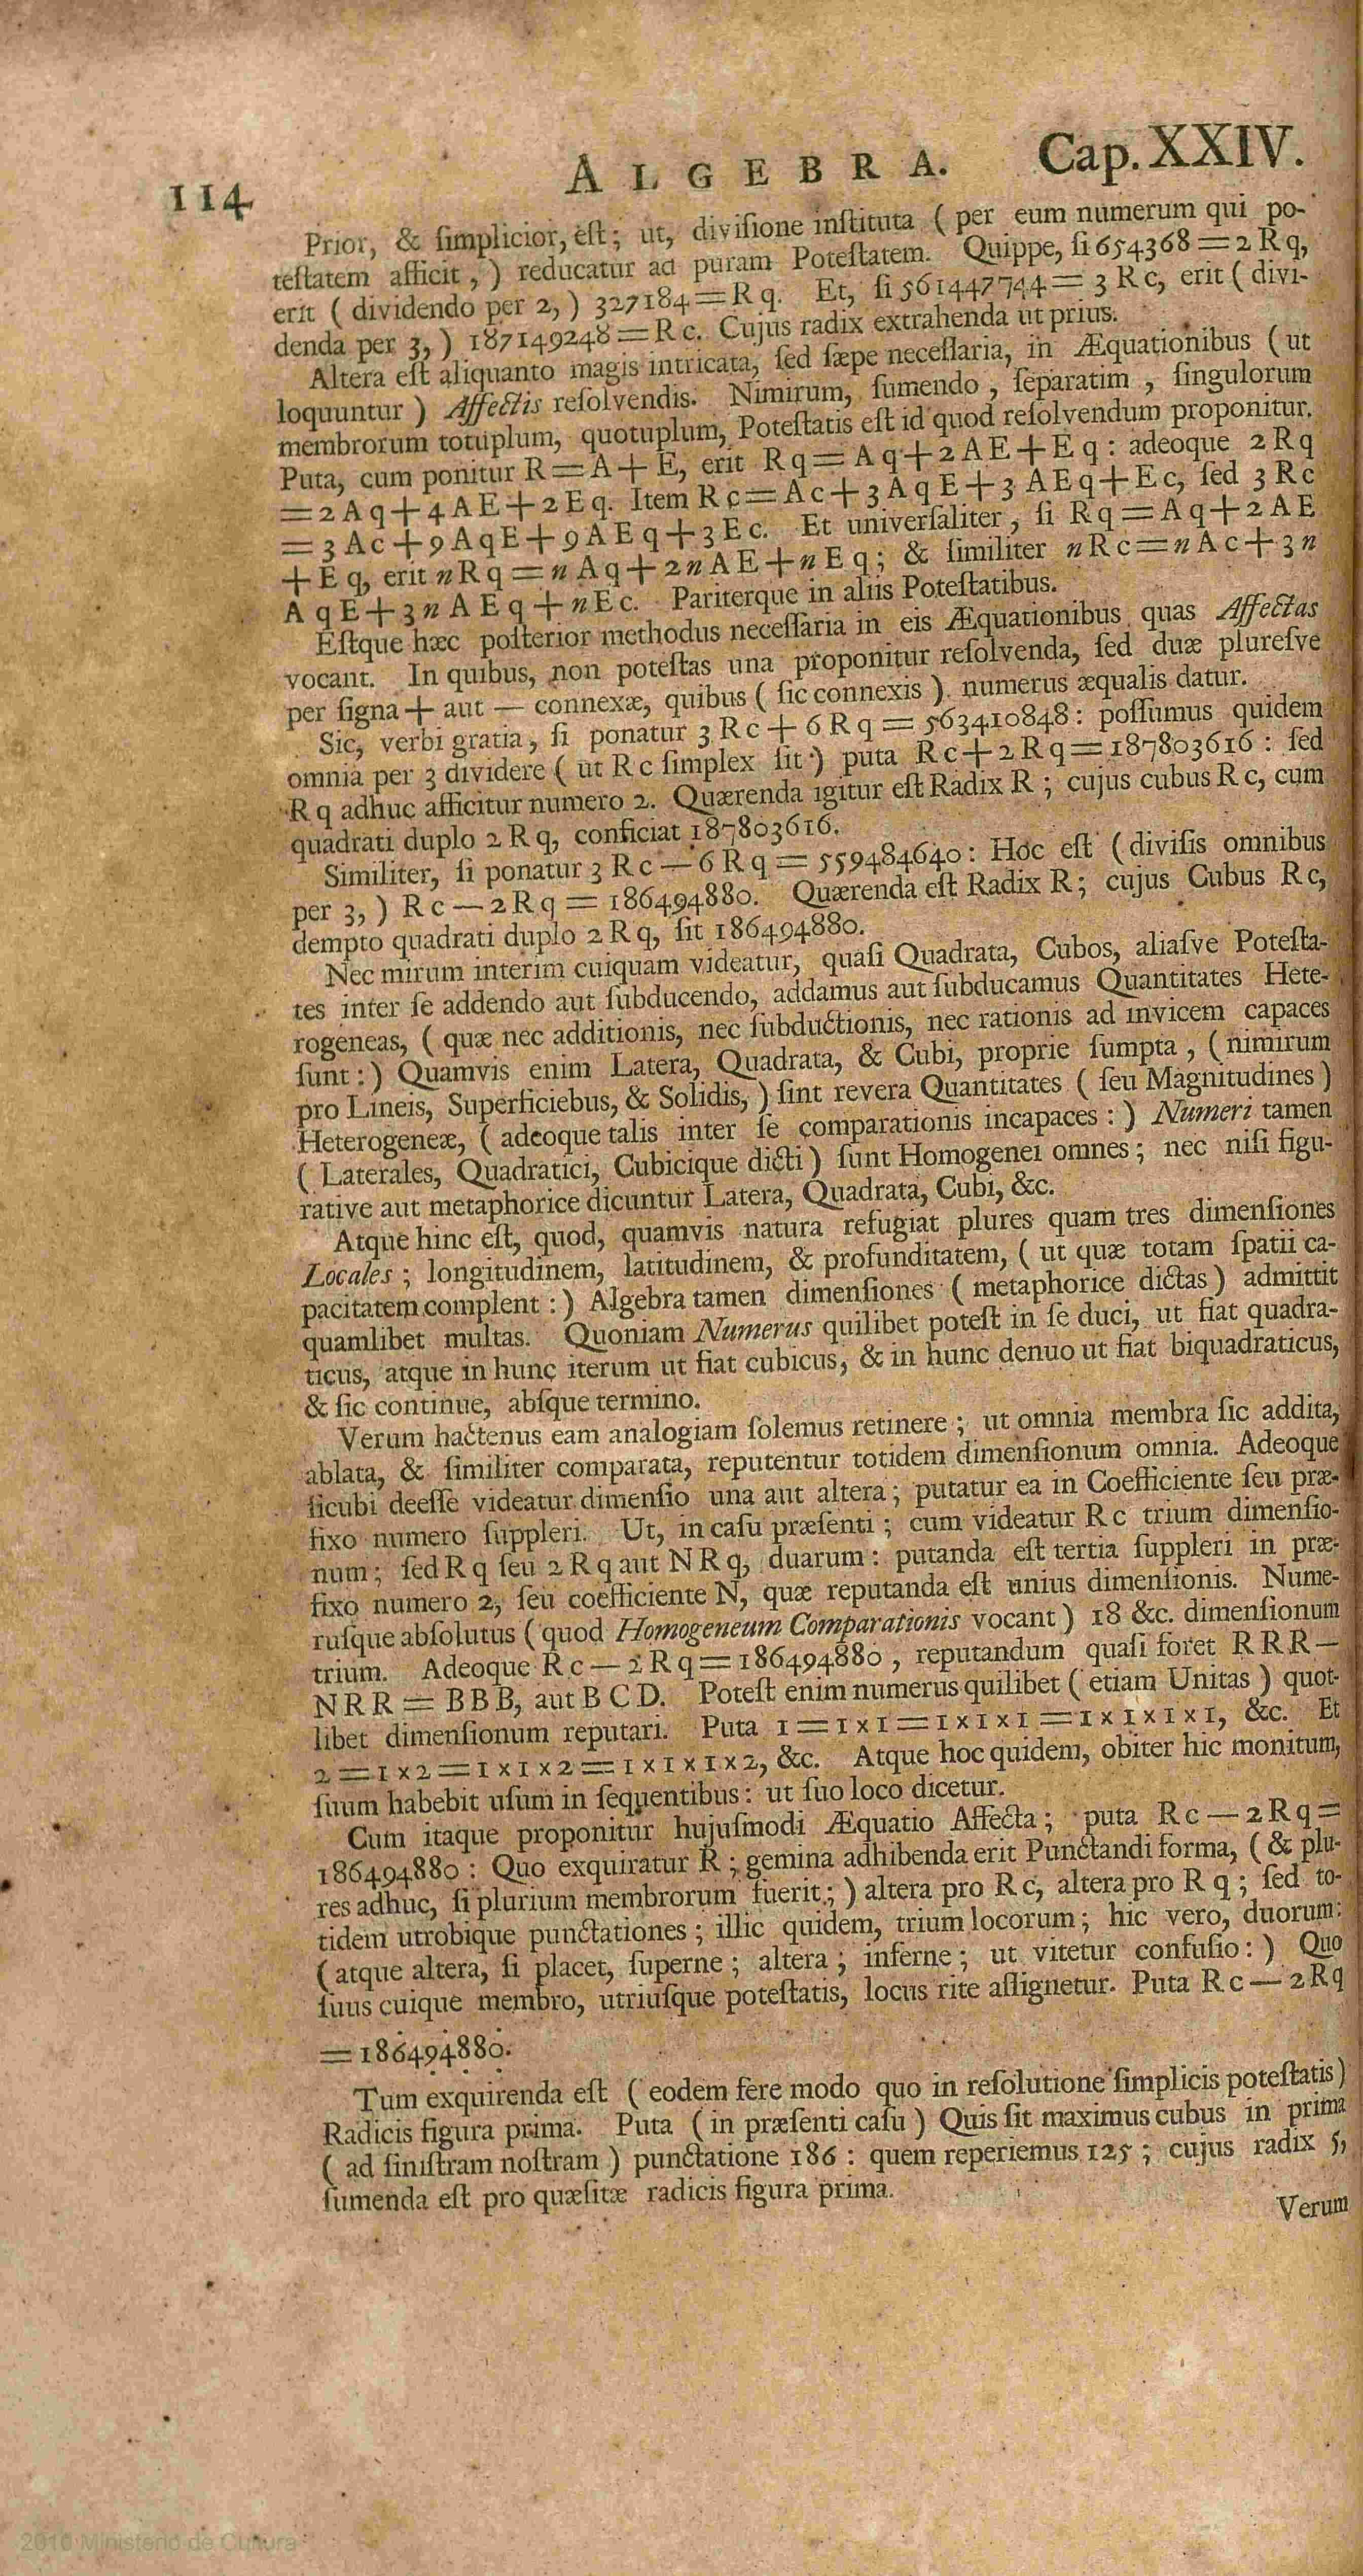 114 ALGEBRA. Cap. XXIV.
Prior, & ſimplicior, eſt; ut, diviſione inſtituta ( per eum numerum qui po-
teſtatem afficit, ) reducatur ad puram Poteſtatem. Quippe, ſi 654368 = 2 R q,
erit ( dividendo per 2, ) 327184 = R q. Et, ſi 561447744 = 3 R c, erit ( divi-
denda per 3, ) 187149248 = R c. Cujus radix extrahenda ut prius.
Altera eſt aliquanto magis intricata, ſed ſæpe neceſſaria, in Æquationibus ( ut
loquuntur ) Affectis reſolvendis. Nimirum, ſumendo, ſeparatim, ſingulorum
membrorum totuplum, quotuplum, Poteſtatis eſt id quod reſolvendum proponitur.
Puta, cum ponitur R = A + E, erit R q = A q + 2 A E + E q : adeoque 2 R q
= 2 A q + 4 A E + 2 E q. Item R c = A c + 3 A q E + 3 A E q + E c, ſed 3 R c
= 3 A c + 9 A q E + 9 A E q + 3 E c. Et univerſaliter, ſi R q = A q + 2 A E
+ E q, erit n R q = n A q + 2 n A E + n E q; & ſimiliter n R c = n A c + 3 n
A q E + 3 n A E q + n E c. Pariterque in aliis Poteſtatibus.
Eſtque hæc poſterior methodus neceſſaria in eis Æquationibus quas Affectas
vocant. In quibus, non poteſtas una proponitur reſolvenda, ſed duæ plureſve
per ſigna + aut — connexæ, quibus ( ſic connexis ) numerus æqualis datur.
Sic, verbi gratia, ſi ponatur 3 R c + 6 R q = 563410848 : poſſumus quidem
omnia per 3 dividere ( ut R c ſimplex ſit ) puta R c + 2 R q = 187803616 : ſed
R q adhuc afficitur numero 2. Quærenda igitur eſt Radix R ; cujus cubus R c, cum
quadrati duplo 2 R q, conficiat 187803616.
Similiter, ſi ponatur 3 R c — 6 R q = 559484640 : Hoc eſt ( diviſis omnibus
per 3, ) R c — 2 R q = 186494880. Quærenda eſt Radix R; cujus Cubus R c,
dempto quadrati duplo 2 R q, ſit 186494880.
Nec mirum interim cuiquam videatur, quaſi Quadrata, Cubos, aliaſve Poteſta-
tes inter ſe addendo aut ſubducendo, addamus aut ſubducamus Quantitates Hete-
rogeneas, ( quæ nec additionis, nec ſubductionis, nec rationis ad invicem capaces
ſunt : ) Quamvis enim Latera, Quadrata, & Cubi, proprie ſumpta, ( nimirum
pro Lineis, Superficiebus, & Solidis, ) ſint revera Quantitates ( ſeu Magnitudines )
Heterogeneæ, ( adeoque talis inter ſe comparationis incapaces : ) Numeri tamen
( Laterales, Quadratici, Cubicique dicti ) ſunt Homogenei omnes ; nec niſi figu-
rative aut metaphorice dicuntur Latera, Quadrata, Cubi, &c.
Atque hinc eſt, quod, quamvis natura refugiat plures quam tres dimenſiones
Locales ; longitudinem, latitudinem, & profunditatem, ( ut quæ totam ſpatii ca-
pacitatem complent : ) Algebra tamen dimenſiones ( metaphorice dictas ) admittit
quamlibet multas. Quoniam Numerus quilibet poteſt in ſe duci, ut fiat quadra-
ticus, atque in hunc iterum ut fiat cubicus, & in hunc denuo ut fiat biquadraticus,
& ſic continue, abſque termino.
Verum hactenus eam analogiam ſolemus retinere ; ut omnia membra ſic addita,
ablata, & ſimiliter comparata, reputentur totidem dimenſionum omnia. Adeoque
ſicubi deeſſe videatur dimenſio una aut altera ; putatur ea in Coefficiente ſeu præ-
fixo numero ſuppleri. Ut, in caſu præſenti ; cum videatur R c trium dimenſio-
num ; ſed R q ſeu 2 R q aut N R q, duarum : putanda eſt tertia ſuppleri in præ-
fixo numero 2, ſeu coefficiente N, quæ reputanda eſt unius dimenſionis. Nume-
ruſque abſolutus ( quod Homogeneum Comparationis vocant ) 18 &c. dimenſionum
trium. Adeoque R c — 2 R q = 186494880, reputandum quaſi foret R R R —
N R R = B B B, aut B C D. Poteſt enim numerus quilibet ( etiam Unitas ) quot-
libet dimenſionum reputari. Puta 1 = 1 x 1 = 1 x 1 x 1 = 1 x 1 x 1 x 1, &c. Et
2 = 1 x 2 = 1 x 1 x 2 = 1 x 1 x 1 x 2, &c. Atque hoc quidem, obiter hic monitum,
ſuum habebit uſum in ſequentibus : ut ſuo loco dicetur.
Cum itaque proponitur hujuſmodi Æquatio Affecta ; puta R c — 2 R q =
186494880 : Quo exquiratur R ; gemina adhibenda erit Punctandi forma, ( & plu-
res adhuc, ſi plurium membrorum fuerit ; ) altera pro R c, altera pro R q ; ſed to-
tidem utrobique punctationes ; illic quidem, trium locorum ; hic vero, duorum :
( atque altera, ſi placet, ſuperne ; altera ; inferne ; ut vitetur confuſio : ) Quo
ſuus cuique membro, utriuſque poteſtatis, locus rite aſſignetur. Puta R c — 2 R q
= 186494880.
Tum exquirenda eſt ( eodem fere modo quo in reſolutione ſimplicis poteſtatis )
Radicis figura prima. Puta ( in præſenti caſu ) Quis ſit maximus cubus in prima
( ad ſiniſtram noſtram ) punctatione 186 : quem reperiemus 125 ; cujus radix 5,
ſumenda eſt pro quæſitæ radicis figura prima.
Verum
2010 Ministerio de Cultura